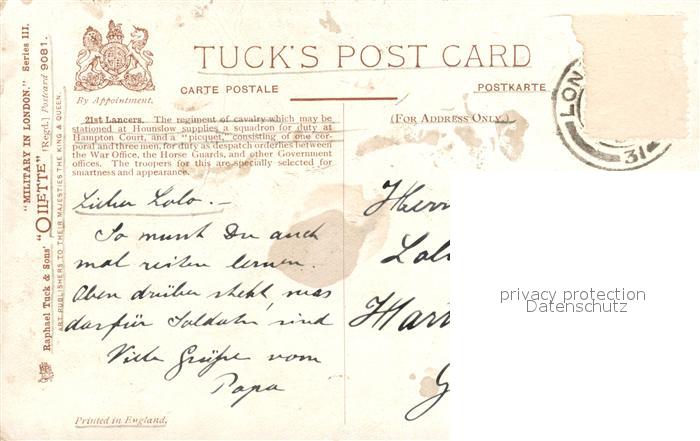 "MILITARY IN LONDON." Series III.
Raphael Tuck & Sons' "OILETTE" [Regd.] Postcard 9081.
ART PUBLISHERS TO THEIR MAJESTIES THE KING & QUEEN.
TUCK'S POST CARD
CARTE POSTALE
POSTKARTE
By Appointment.
21st Lancers. The regiment of cavalry which may be
stationed at Hounslow supplies a squadron for duty at
Hampton Court, and a "picquet," consisting of one cor-
poral and three men, for duty as despatch orderlies between
the War Office, the Horse Guards, and other Government
offices. The troopers for this are specially selected for
smartness and appearance.
Lieber Lolo. –
So musst Du auch
mal reiten lernen.
Oben drüber steht, was
dasfür Soldaten sind
Viele Grüße vom
Papa
Printed in England.
(FOR ADDRESS ONLY.)
Herrn
LON
31
privacy protection
Datenschutz